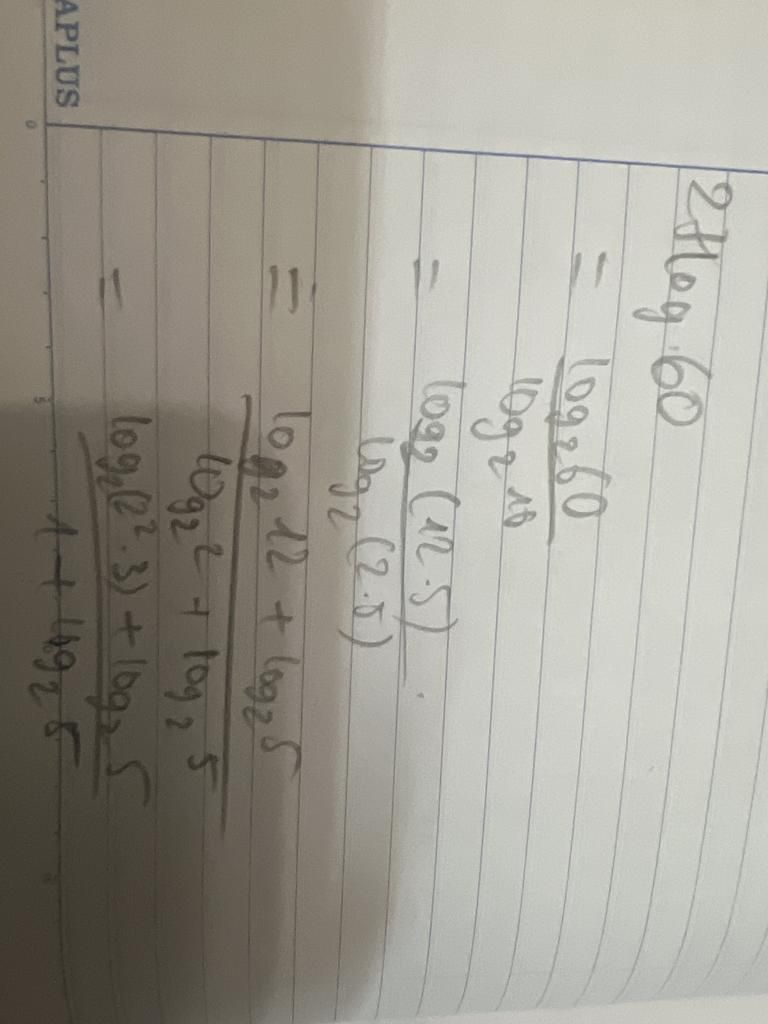 APLUS
27 log 60
= log₂60
log₂10
= log₂(12·5)
log₂(2·5)
= log₂12 + log₂5
log₂2 + log₂5
= log₂(2²·3) + log₂5
1 + log₂5
0
5